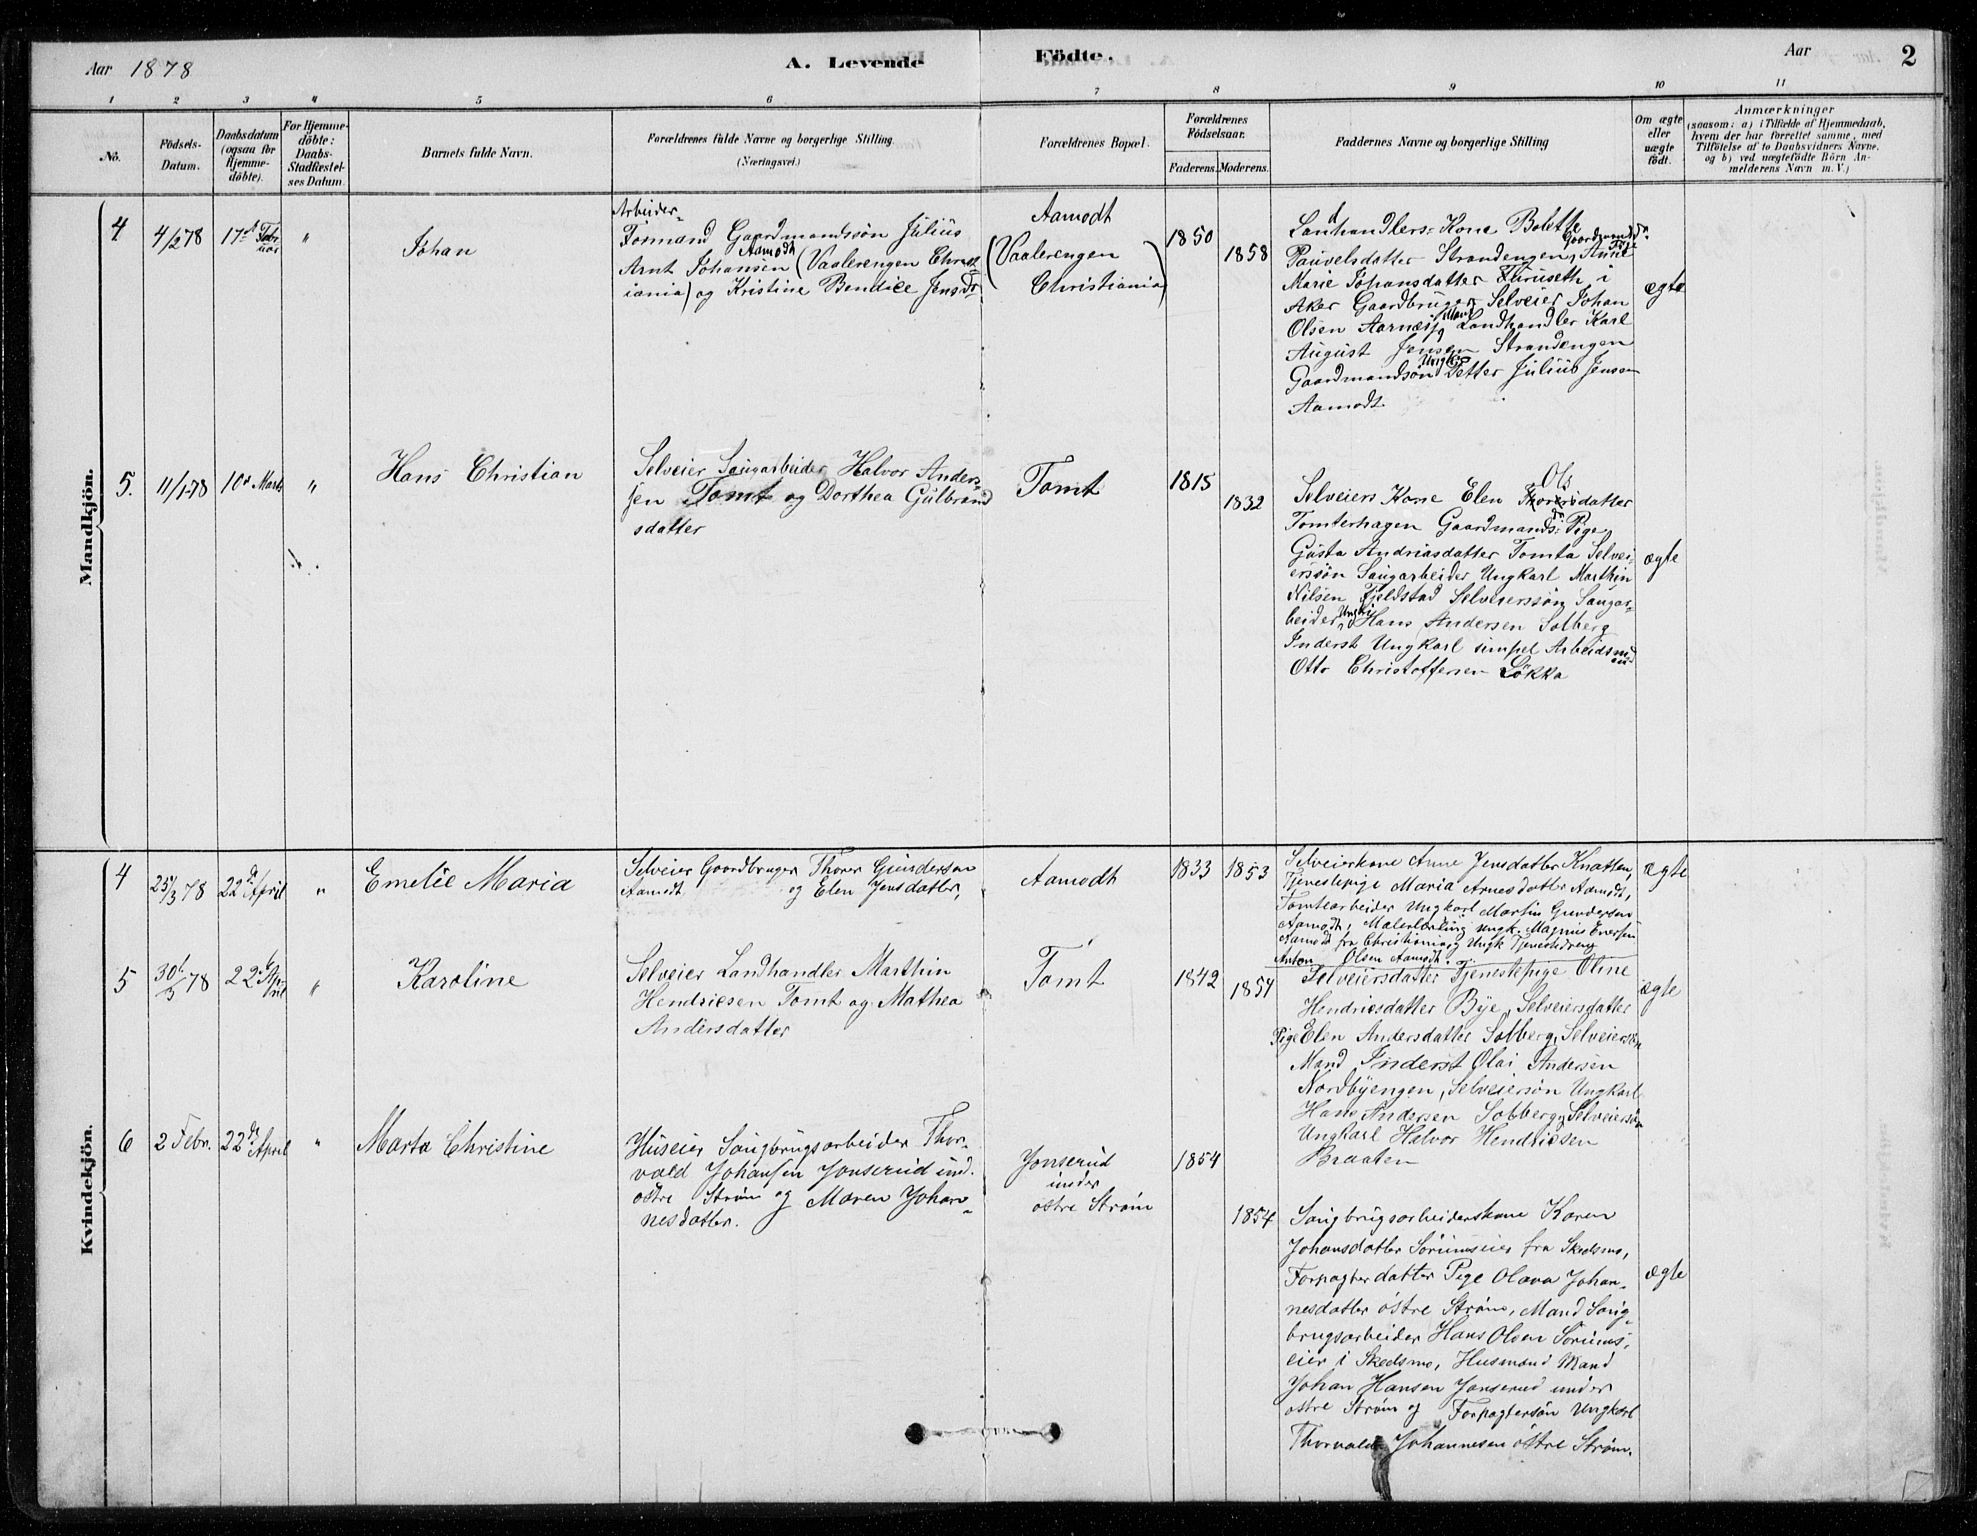 Aar 1878
A. Levende Födte.
Aar
2
1 2 3 4 5 6 7 8 9 10 11
No.
Födsels-
Datum.
Daabsdatum
(ogsaa for
Hjemme-
döbte).
For Hjemme-
döbte:
Daabs-
Stadfæstel-
ses Datum
Barnets fulde Navn.
Forældrenes fulde Navne og borgerlige Stilling
(Næringsvei.)
Forældrenes Bopæl.
Forældrenes
Födselsaar.
Faderens. Moderens.
Faddernes Navne og borgerlige Stilling
Om ægte
eller
uægte
födt.
Anmærkninger
(saasom: a) i Tilfælde af Hjemmedaab,
hvem der har forrettet samme, med
Tilföielse af to Daabsvidners Navne.
og b) ved uægtefödte Börn An-
melderens Navn m.V.)
Mandkjön.
4
4/2 78
17de Febr
uar
"
Johan
Arbeider-
Formand Gaardmandssön Julius
Aamodt
Arnt Johansen (Vaalerengen Christ
iania) og Kristine Bendice Jensdr
Aamodt
(Vaalerengen
Christiania)
1850
1858
Landhandlers Kone Bolette
Pauvelsdatter Strandengen, Gaardmandsdr. Pige Anne
Marie Johansdatter Furuseth i
Aker Gaardbruger Selveier Johan
Olsen Aarnes, Mand Landhandler Karl
August Jensen Strandengen
Gaardmandsön Ungk Petter Julius Jensen
Aamodt
ægte
5.
11/1-78
10de Marts
"
Hans Christian
Selveier Saugarbeider Halvor Anders-
sen Tomt og Dorthea Gulbrand
sdatter
Tomt
1815
1832
Selveiers Kone Elen Ols datter
Tomterhagen Gaardmands Pige
Gusta Andriasdatter Tomta Selvei-
erssön Saugarbeider Ungkarl Marthin
Nilsen Fjeldstad Selveierssön Saugar-
beider Ungk Hans Andersen Solberg
Inderst Ungkarl simpel Arbeidsm
Otto Christoffersen Løkka
ægte
Kvindekjön.
4
25/3 78
22de April
"
Emelie Maria
Selveier Gaardbruger Thorer Gundersen
Aamodt og Elen Jensdatter,
Aamodt
1833 1853
Selveierkone Anne Jensdatter Knatten,
Tjenestepige Maria Arnesdatter Aamodt,
Tomtearbeider Ungkarl Martin Gundersen
Aamodt, Malerlærling Ungk. Magnus Evensen
Aamodt fra Christiania, Ungk Tjenestedreng
Anton Olsen Aamodt.
ægte
5
30/3 78
22de Ap-
ril
"
Karoline
Selveier Landhandler Marthin
Hendriesen Tomt og Mathea
Andersdatter
Tomt
1842
1854
Selveiersdatter Tjenestepige Oline
Hendriesdatter Bye, Selveiersdatter
Pige Elen Andersdatter Solberg, Selveiersön
Mand Inderst Olai Andersen
Nordbyengen, Selveiersön Ungkarl
Hans Andersen Solberg, Selveiersön
Ungkarl Halvor Hendriesen
Braaten
ægte
6
2 Febr.
22de April
"
Marta Christine
Huseier Saugbrugsarbeider Thor-
vald Johansen Jonserud und.
østre Strøm og Maren Johan-
nesdatter.
Jonserud
under
østre Strøm
1854
1854
Saugbrugsarbeiderskone Karen
Johansdatter Sørumseier fra Skedsmo,
Forpagterdatter Pige Olava Johan-
nesdatter østre Strøm, Mand Saug-
brugsarbeider Hans Olsen Sørums-
eier i Skedsmo, Husmand Mand
Johan Hansen Jonserud under
østre Strøm og Forpagtersøn Ungkarl
Thorvald Johannesen østre Strøm.
ægte